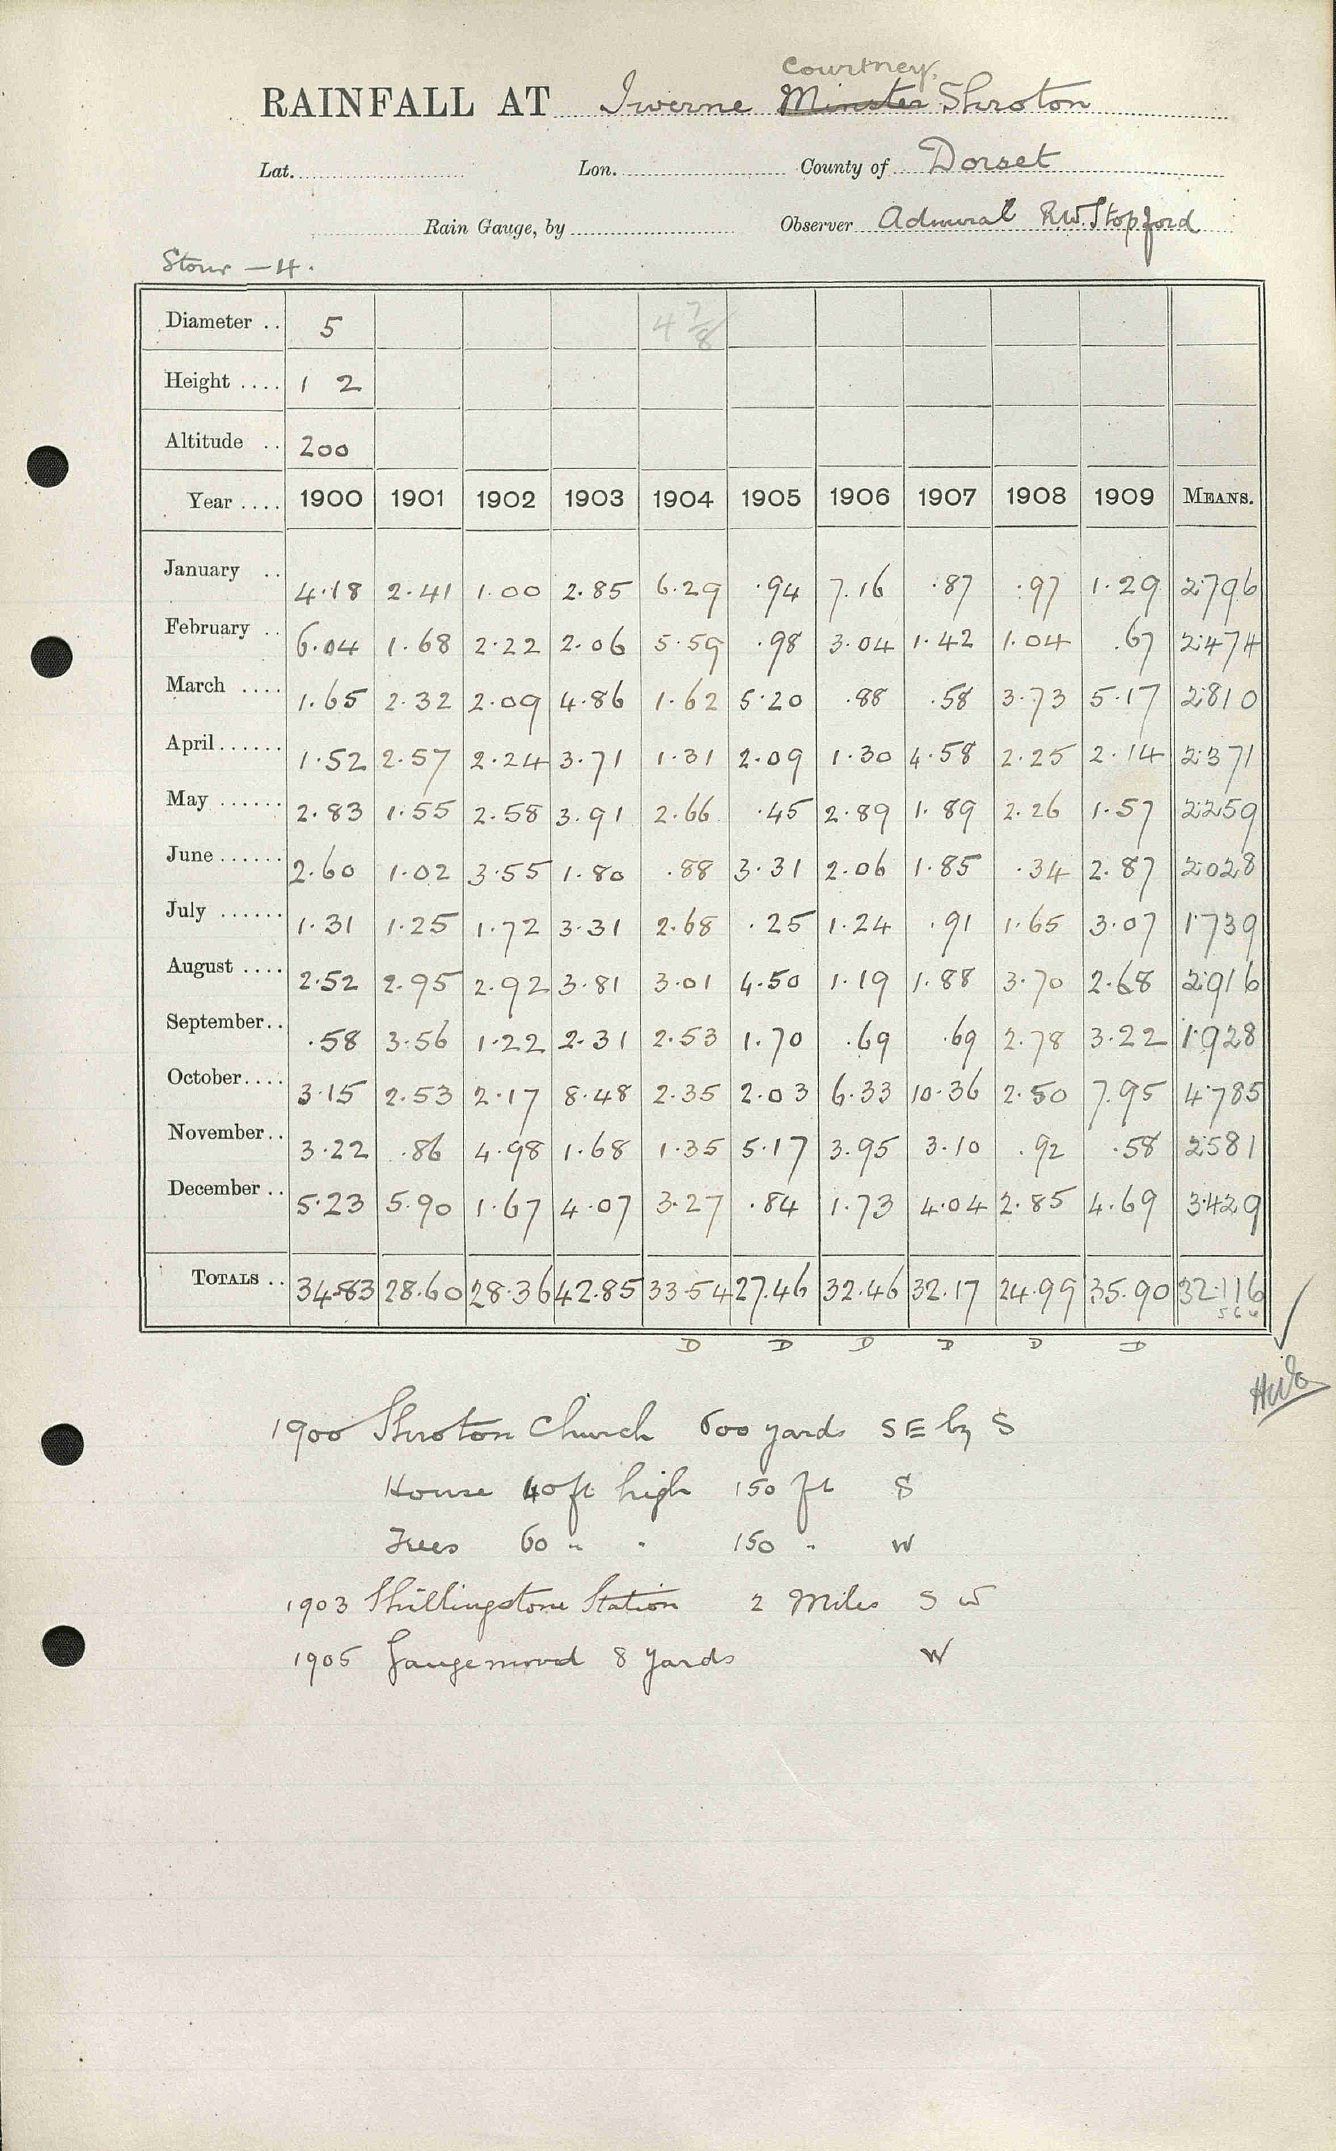 Courtney,
RAINFALL AT Iwerne Minster Shroton
Lat. Lon. County of Dorset
Rain Gauge, by Observer Admiral R.W. Stopford
Stour – 4.
Diameter .. 5 4 7/8
Height .... 1 2
Altitude .. 200
Year .... 1900 1901 1902 1903 1904 1905 1906 1907 1908 1909 MEANS.
January .. 4.18 2.41 1.00 2.85 6.29 .94 7.16 .87 .97 1.29 2.796
February .. 6.04 1.68 2.22 2.06 5.59 .98 3.04 1.42 1.04 .67 2.474
March .... 1.65 2.32 2.09 4.86 1.62 5.20 .88 .58 3.73 5.17 2.810
April...... 1.52 2.57 2.24 3.71 1.31 2.09 1.30 4.58 2.25 2.14 2.371
May ...... 2.83 1.55 2.58 3.91 2.66 .45 2.89 1.89 2.26 1.57 2.259
June ...... 2.60 1.02 3.55 1.80 .88 3.31 2.06 1.85 .34 2.87 2.028
July ...... 1.31 1.25 1.72 3.31 2.68 .25 1.24 .91 1.65 3.07 1.739
August .... 2.52 2.95 2.92 3.81 3.01 4.50 1.19 1.88 3.70 2.68 2.916
September.. .58 3.56 1.22 2.31 2.53 1.70 .69 .69 2.78 3.22 1.928
October.... 3.15 2.53 2.17 8.48 2.35 2.03 6.33 10.36 2.50 7.95 4.785
November.. 3.22 .86 4.98 1.68 1.35 5.17 3.95 3.10 .92 .58 2.581
December .. 5.23 5.90 1.67 4.07 3.27 .84 1.73 4.04 2.85 4.69 3.429
TOTALS .. 34.83 28.60 28.36 42.85 33.54 27.46 32.46 32.17 24.99 35.90 32.116
D D D D D D
1900 Shroton Church 600 yards SE by S
House 40 ft high 150 ft S
Trees 60 " " 150 " W
1903 Shillingstone Station 2 Miles S W
1905 Gauge moved 8 yards W